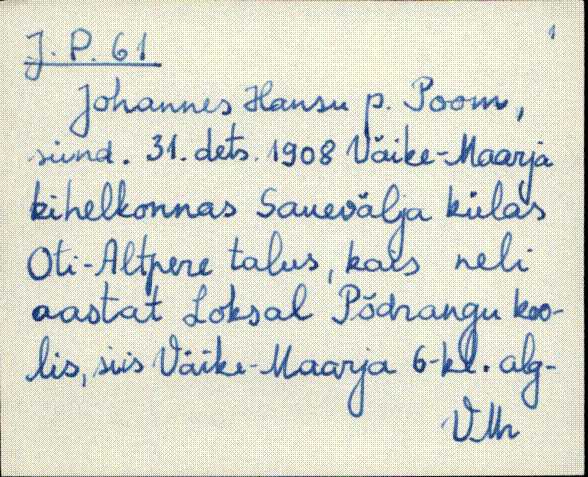 1
J. P. 61
Johannes Hansu p. Poom,
sünd. 31. dets. 1908 Väike-Maarja
kihelkonnas Sauevälja külas
Oti-Altpere talus, käis neli
aastat Loksal Põdrangu koo-
lis, siis Väike-Maarja 6-kl. alg-
VMr